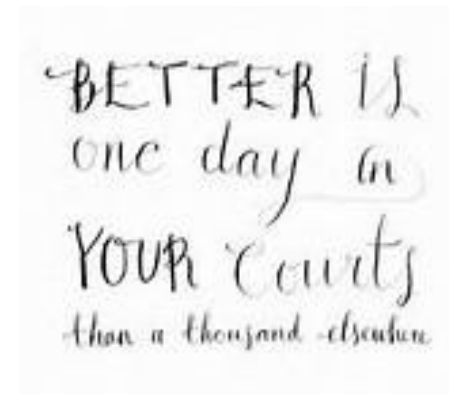 BETTER is
one day in
YOUR courts
than a thousand elsewhere